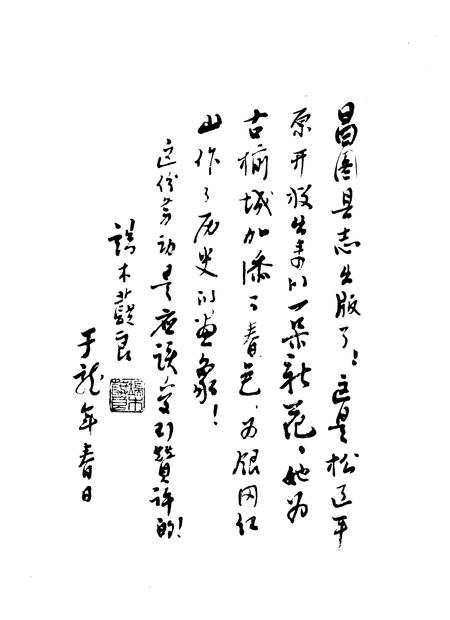 昌圖县志出版了！这是松辽平
原开放出来的一朵新花，她为
古榆城加添了春色，为银冈红
山作了历史的画象！
这份劳动是应该受到赞许的！
端木蕻良
于龙年春日